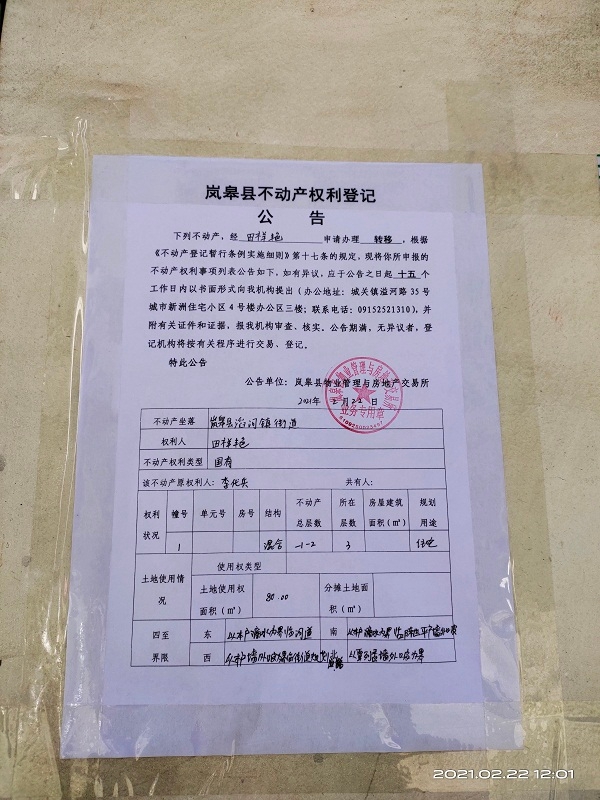 岚皋县不动产权利登记
公 告
下列不动产，经 田祥艳 申请办理 转移 ，根据
《不动产登记暂行条例实施细则》第十七条的规定，现将你所申报的
不动产权利事项列表公告如下，如有异议，应于公告之日起 十五 个
工作日内以书面形式向我机构提出（办公地址：城关镇溢河路35号
城市新洲住宅小区4号楼办公区三楼；联系电话：09152521310），并
附有关证件和证据，报我机构审查、核实。公告期满，无异议者，登
记机构将按有关程序进行交易、登记。
特此公告
公告单位：岚皋县物业管理与房地产交易所
2021年2月22日
业务专用章
不动产坐落 岚皋县 镇街道
权利人 田祥艳
不动产权利类型 国有
该不动产原权利人： 共有人：
权利状况 幢号 单元号 房号 结构 不动产总层数 所在层数 房屋建筑面积（㎡） 规划用途
1 混合 -1-2 3 住宅
土地使用情况 使用权类型
土地使用权面积（㎡） 80.00 分摊土地面积（㎡）
四至界限 东 南
西
2021.02.22 12:01